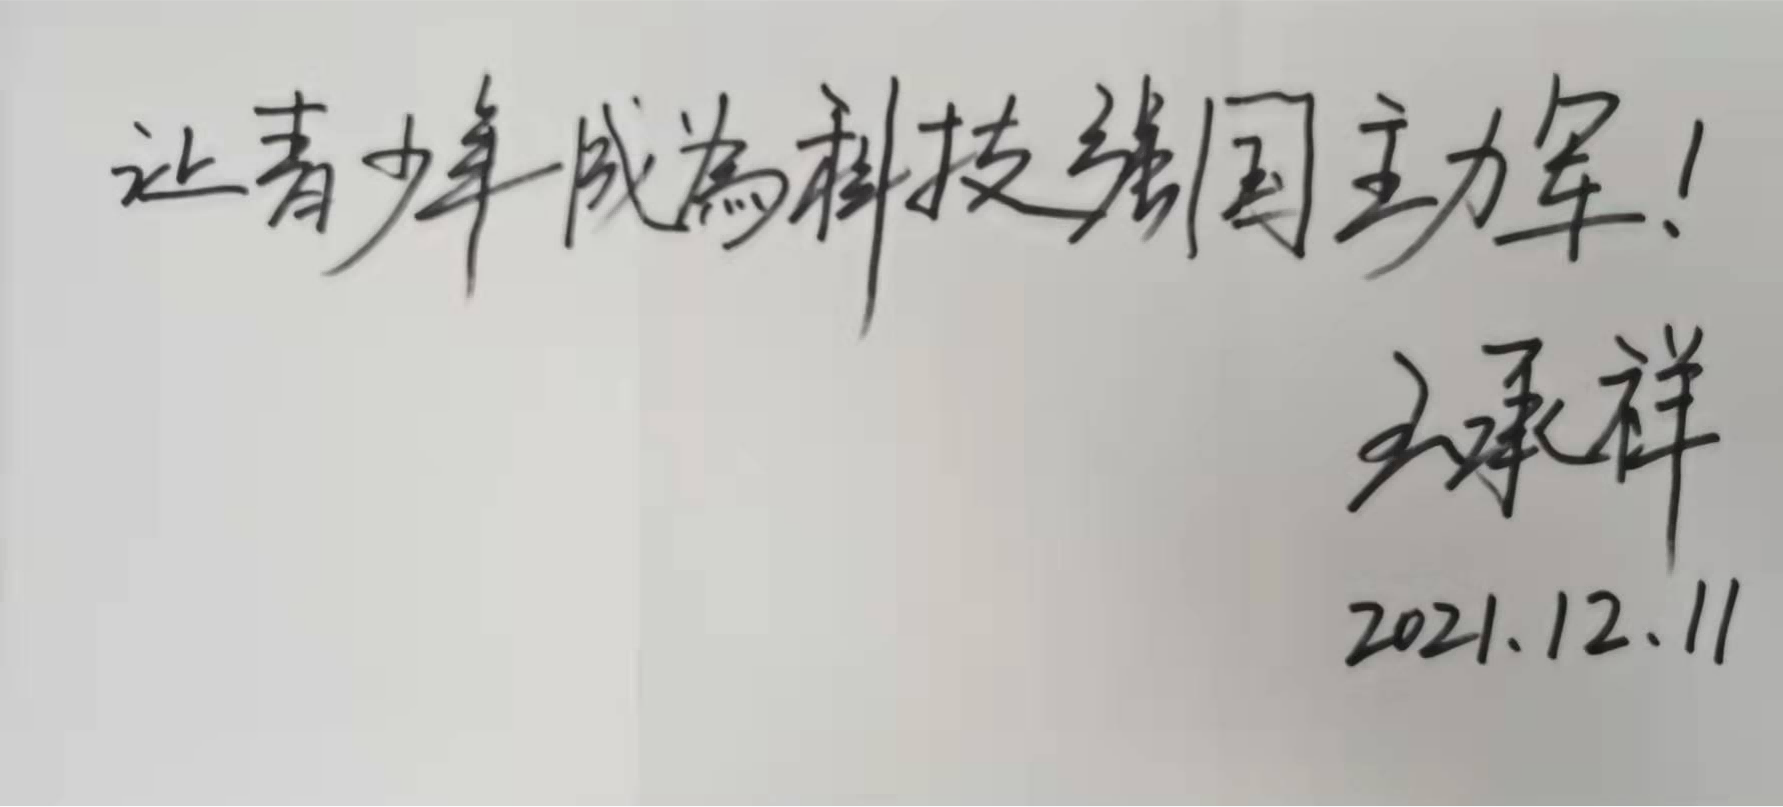 让青少年成為科技强国主力军!
王承祥
2021.12.11